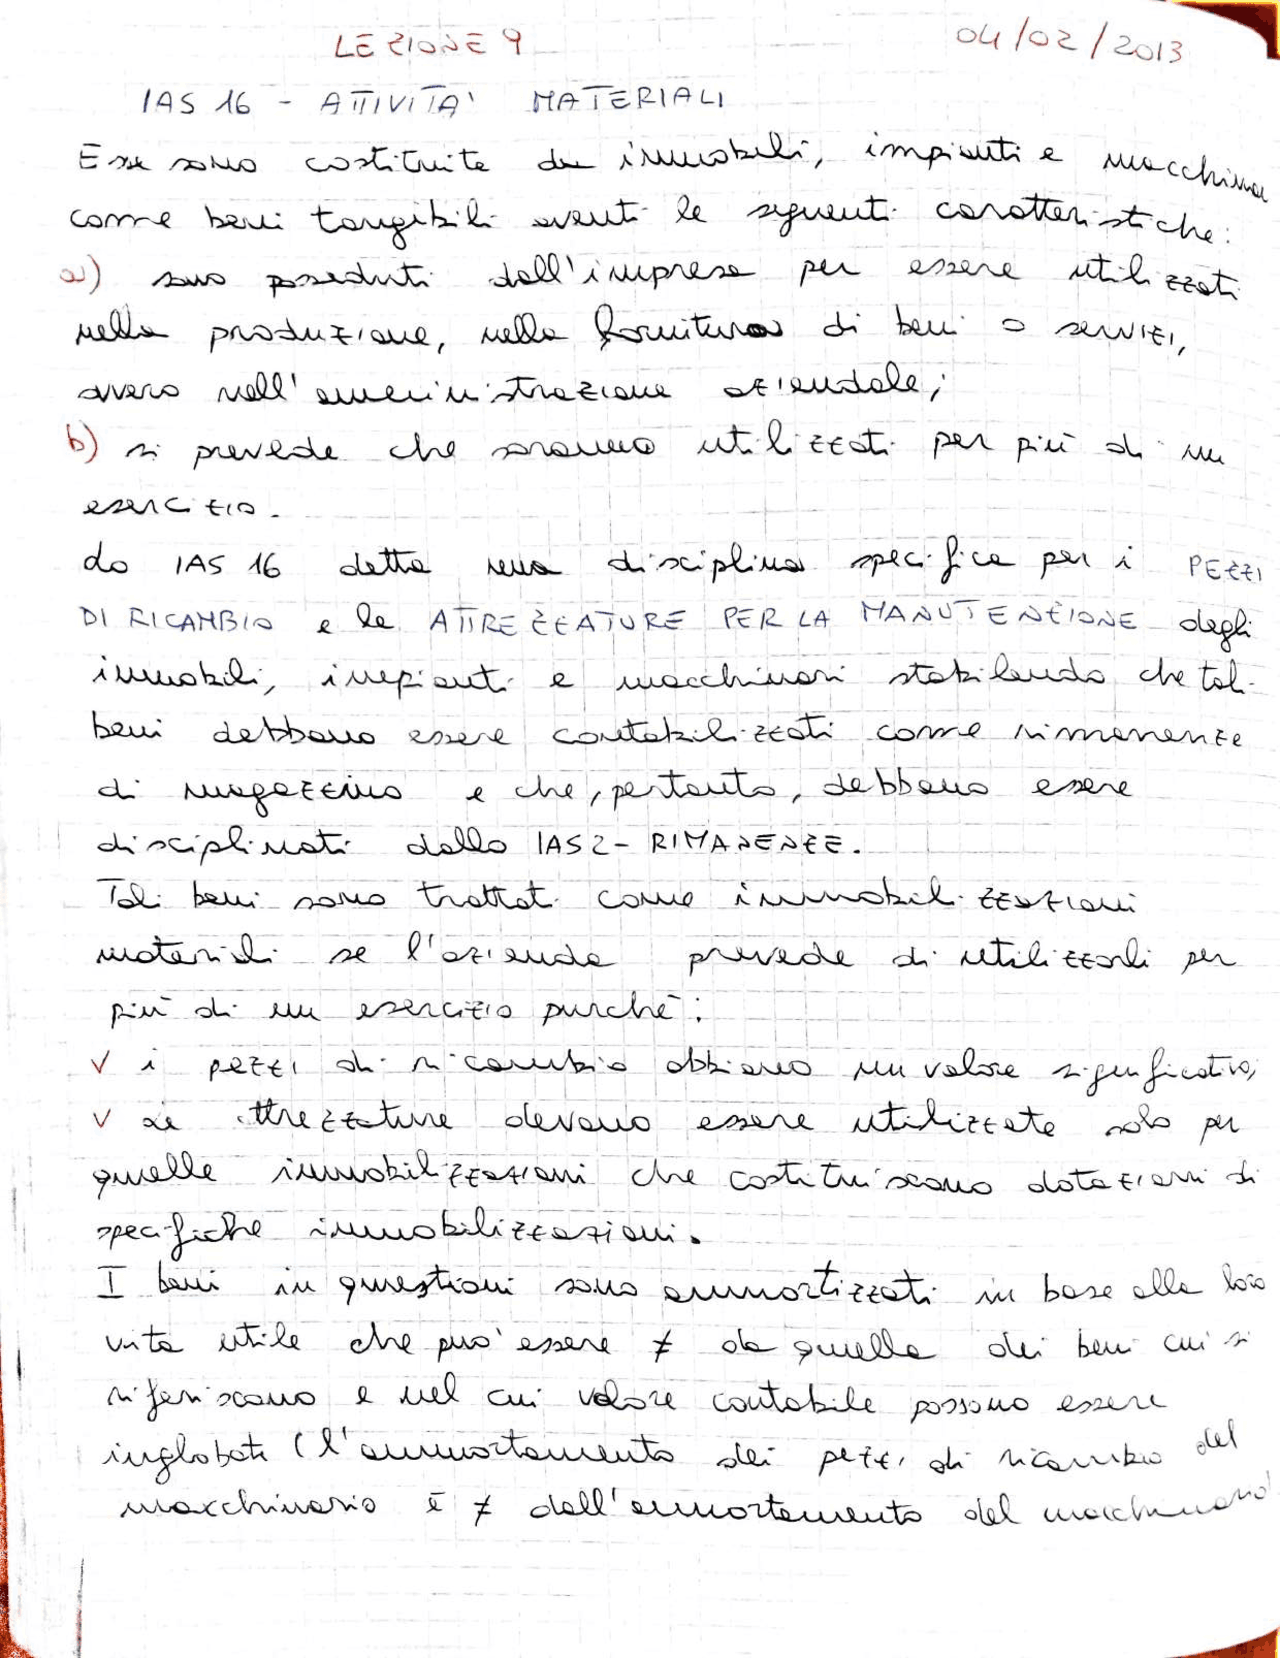 LEZIONE 9 04/02/2013
IAS 16 - ATTIVITA' MATERIALI
Esse sono costituite da immobili, impianti e macchinari
come beni tangibili aventi le seguenti caratteristiche:
a) sono posseduti dall'impresa per essere utilizzati
nella produzione, nella fornitura di beni o servizi,
ovvero nell'amministrazione aziendale;
b) si prevede che saranno utilizzati per più di un
esercizio.
Lo IAS 16 detta una disciplina specifica per i PEZZI
DI RICAMBIO e le ATTREZZATURE PER LA MANUTENZIONE degli
immobili, impianti e macchinari stabilendo che tali
beni debbano essere contabilizzati come rimanenze
di magazzino e che, pertanto, debbano essere
disciplinati dallo IAS 2 - RIMANENZE.
Tali beni sono trattati come immobilizzazioni
materiali se l'azienda prevede di utilizzarli per
più di un esercizio purché:
√ i pezzi di ricambio abbiano un valore significativo;
√ Le attrezzature devono essere utilizzate solo per
quelle immobilizzazioni che costituiscono dotazioni di
specifiche immobilizzazioni.
I beni in questioni sono ammortizzati in base alla loro
vita utile che può essere ≠ da quella dei beni cui si
riferiscono e nel cui valore contabile possono essere
inglobati (l'ammortamento dei pezzi di ricambio del
macchinario è ≠ dall'ammortamento del macchinario)